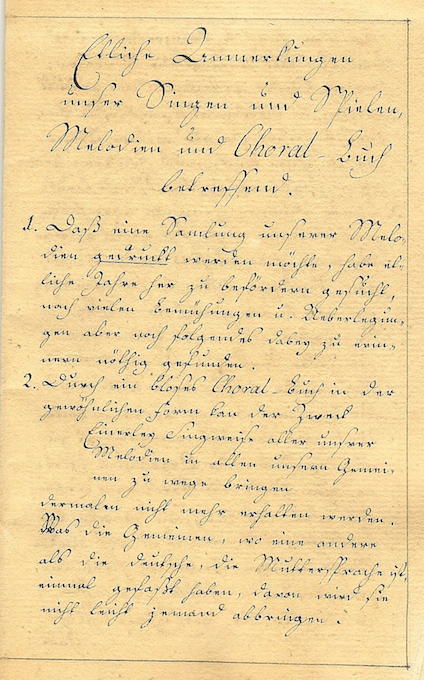 Etliche Anmerkungen
unser Singen und Spielen,
Melodien und Choral-Buch
betreffend.
1. Daß eine Samlung unserer Melo-
dien gedruckt werden möchte, habe et-
liche Jahre her zu befördern gesucht,
nach vielen Bemühungen u. Ueberlegun-
gen aber noch folgendes dabey zu erin-
nern nöthig gefunden.
2. Durch ein bloses Choral-Buch in der
gewöhnlichen Form kan der Zweck
Einerley Singweise aller unsrer
Melodien in allen unsern Gemei-
nen zu wege bringen
dermalen nicht mehr erhalten werden.
Was die Gemeinen, wo eine andere
als die deutsche, die Muttersprache ist,
einmal gefaßt haben, davon wird sie
nicht leicht jemand abbringen.